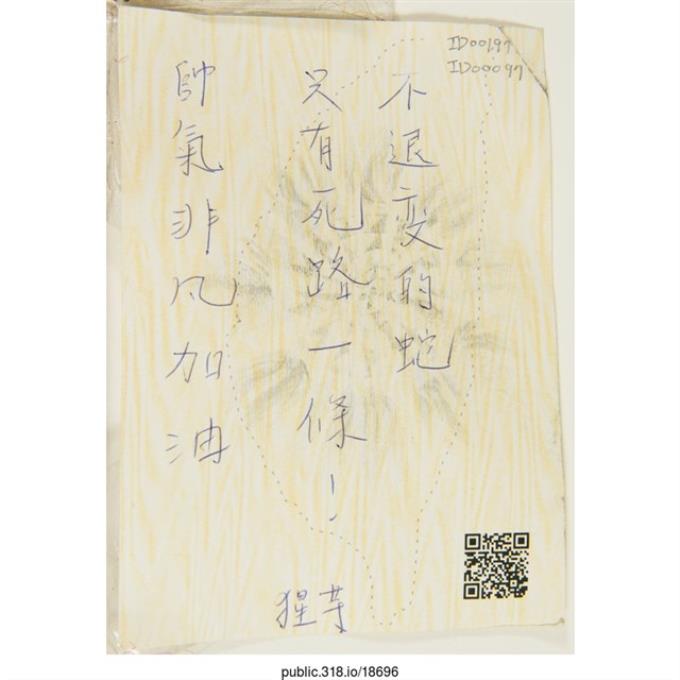 ID00197
ID00097
不退变的蛇
只有死路一條！
帥氣非凡加油
猩芋
public.318.io/18696